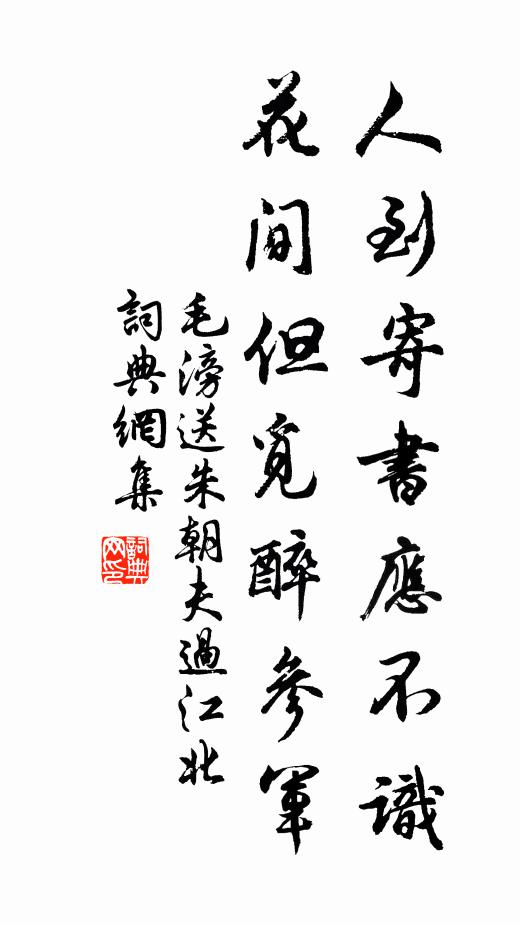 人到寄書應不識
花間但覓醉參軍
毛滂送朱朝夫過江北
詞典網集
詞典網印